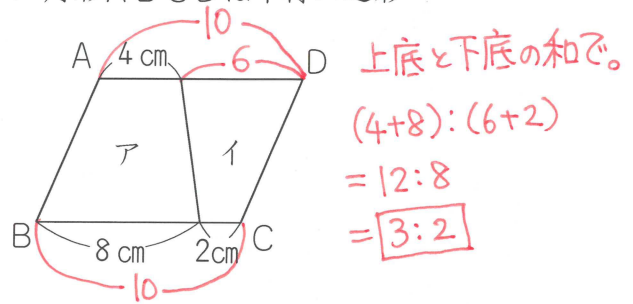 10
A 4cm 6 D
ア イ
B 8cm 2cm C
10
上底と下底の和で。
(4+8):(6+2)
=12:8
=3:2